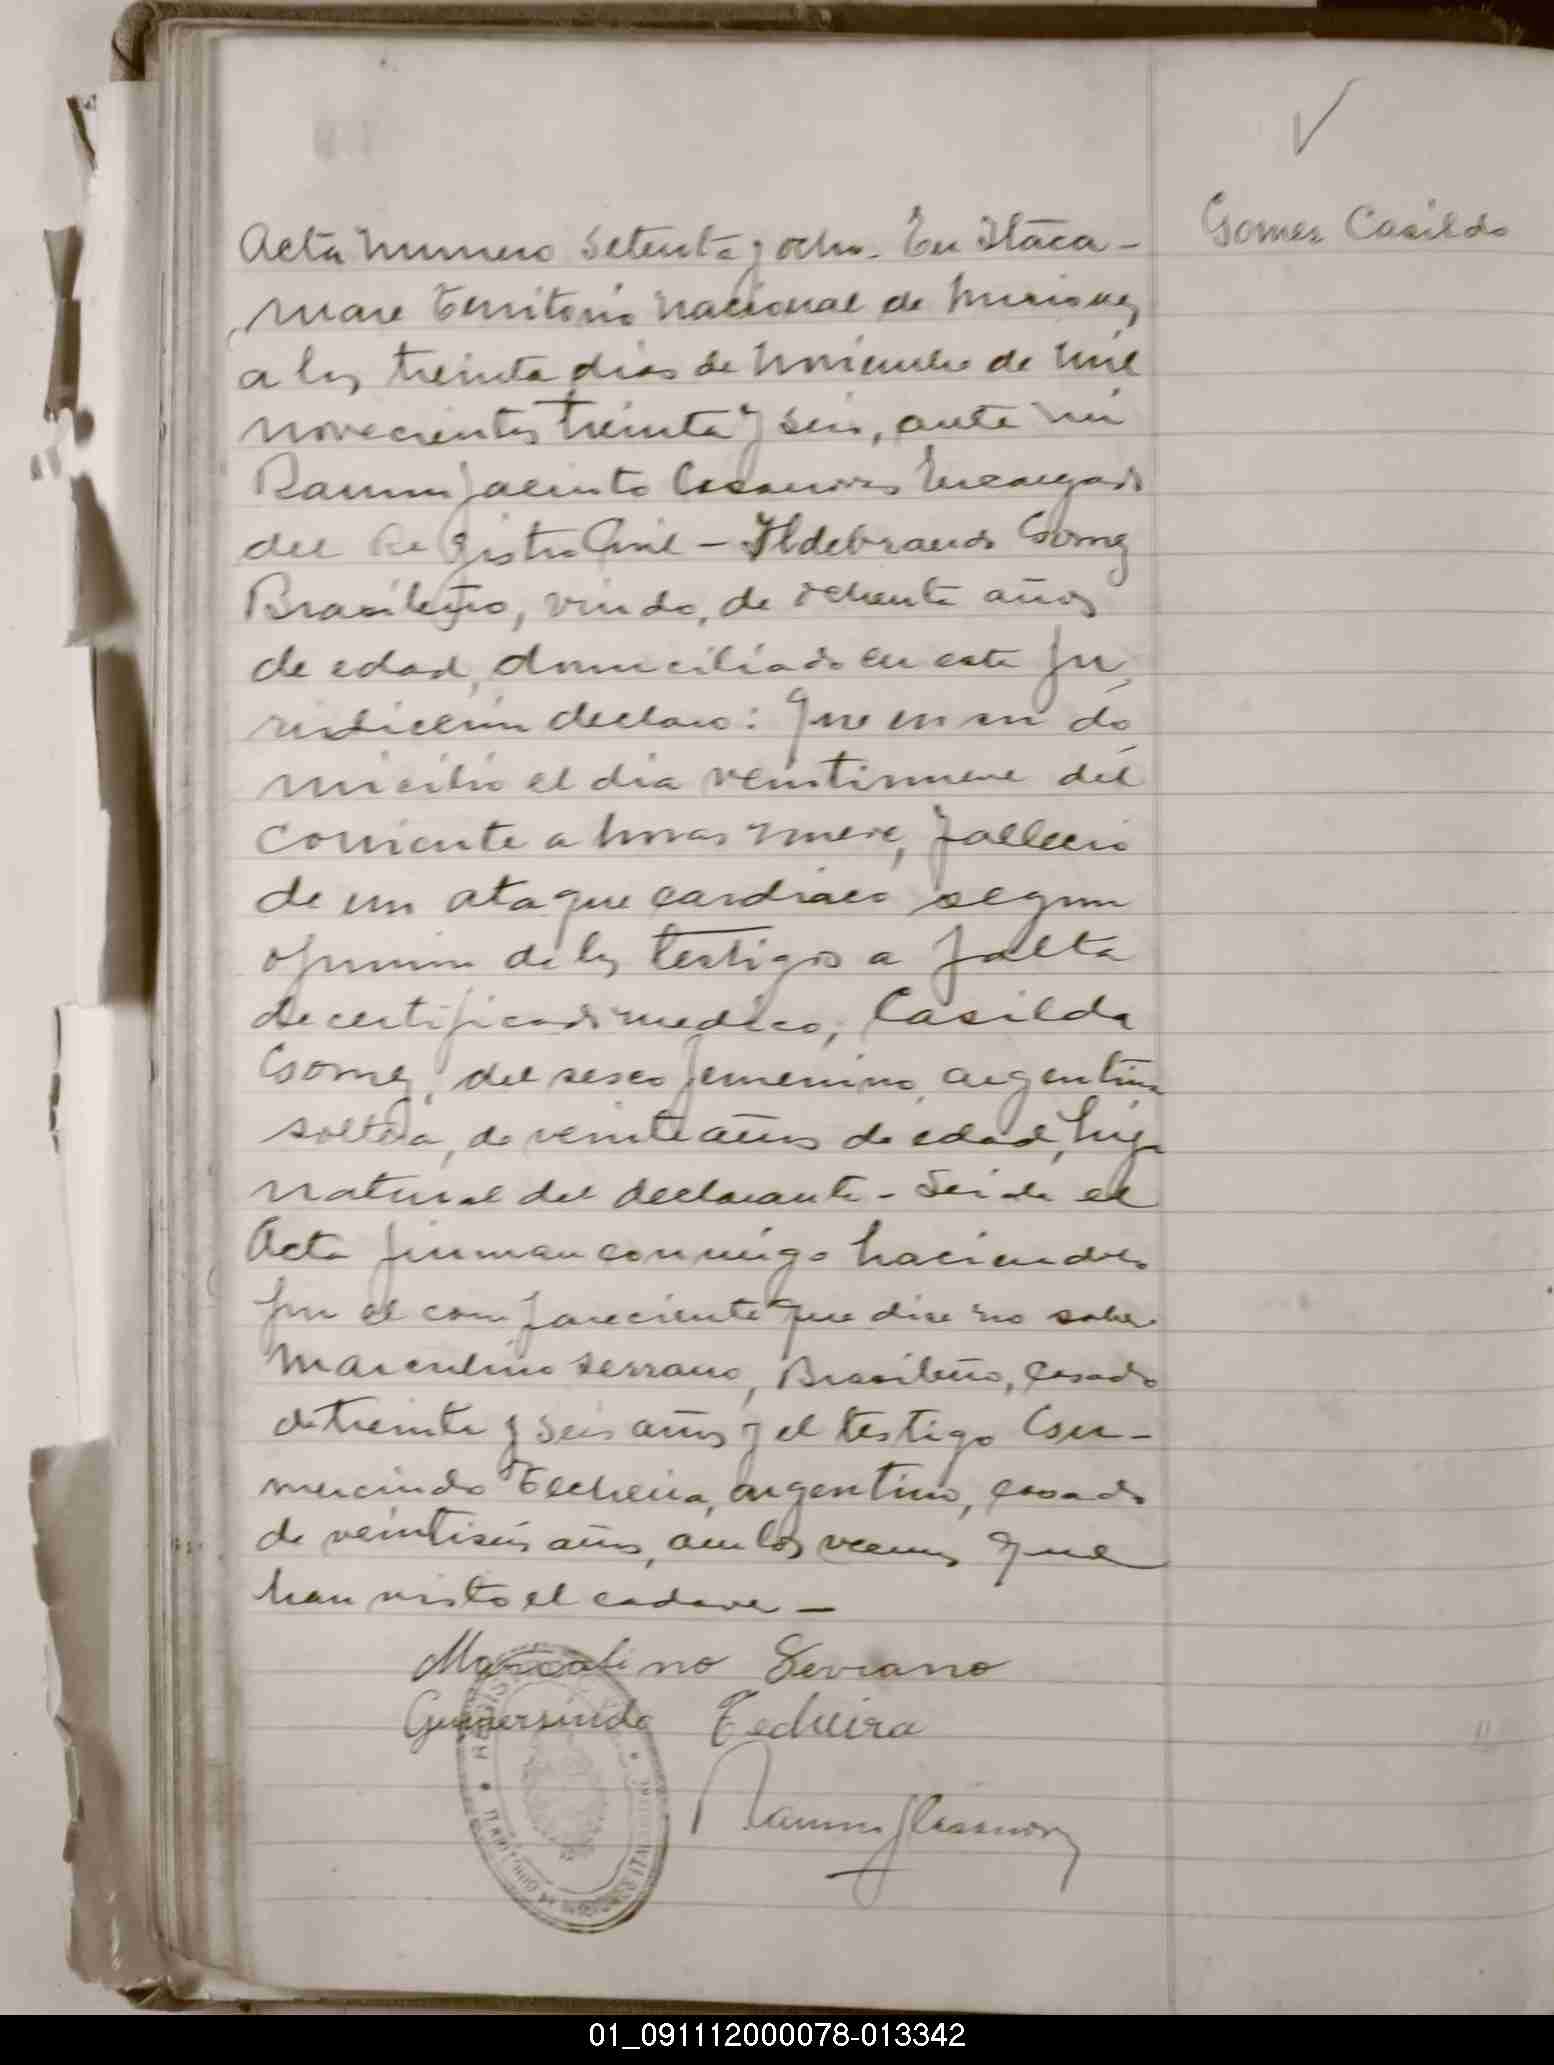 Gomes Casildo
Acta numero setenta y ocho. En Itaca-
mare territorio nacional de Misiones
a los treinta dias de noviembre de mil
novecientos treinta y seis, ante mi
Ramon Jacinto Casanova Encargado
del Registro Civil - Ildebrando Gomez
Brasileño, viudo, de ochenta años
de edad, domiciliado en esta ju
risdiccion declaro: Que en su do
micilio el dia veintinueve del
corriente a horas nueve, fallecio
de un ataque cardiaco segun
opinion de los testigos a falta
de certificado medico, Casilda
Gomez, del sexo femenino, argentina
soltera, de veinte años de edad, hija
natural del declarante - Leida el
Acta firman conmigo haciendolo
por el compareciente que dice no saber
Marculino Serrano, Brasileño, casado
de treinta y seis años y el testigo Gu-
mercindo Techeira, argentino, casado
de veintiseis años, ambos vecinos que
han visto el cadaver -
Marcalino Serrano
Gumersindo Techeira
Ramon J Casanova
01_091112000078-013342